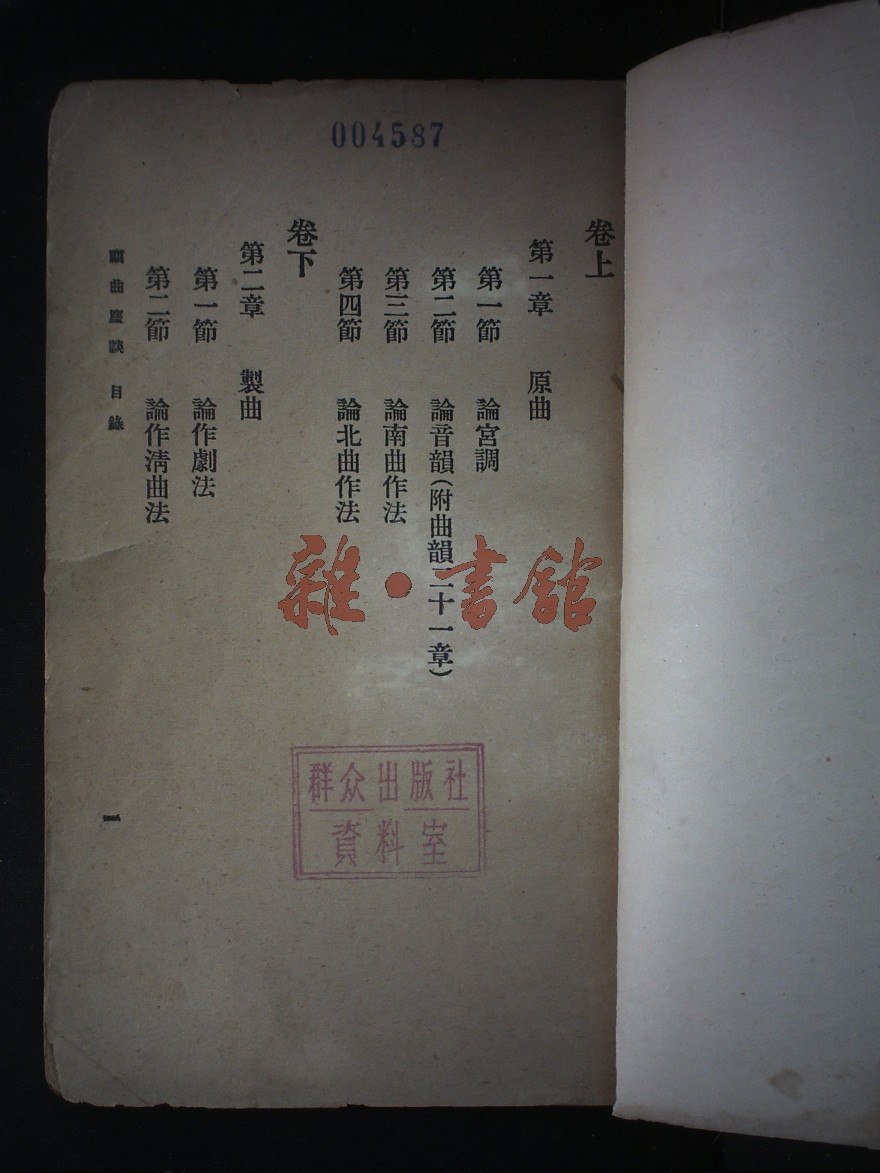 004587
卷上
第一章 原曲
第一節 論宮調
第二節 論音韻(附曲韻二十一章)
第三節 論南曲作法
第四節 論北曲作法
卷下
第二章 製曲
第一節 論作劇法
第二節 論作淸曲法
顧曲麈談 目錄
一
雜·書館
群众出版社
資料室